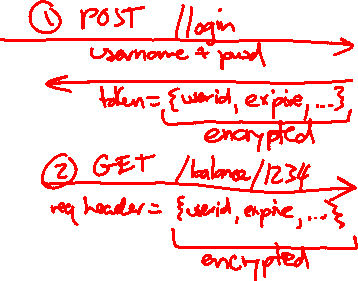 ① POST /login
username + pwd
token = {userid, expire, ...}
encrypted
② GET /balance/1234
req header = {userid, expire, ...}
encrypted